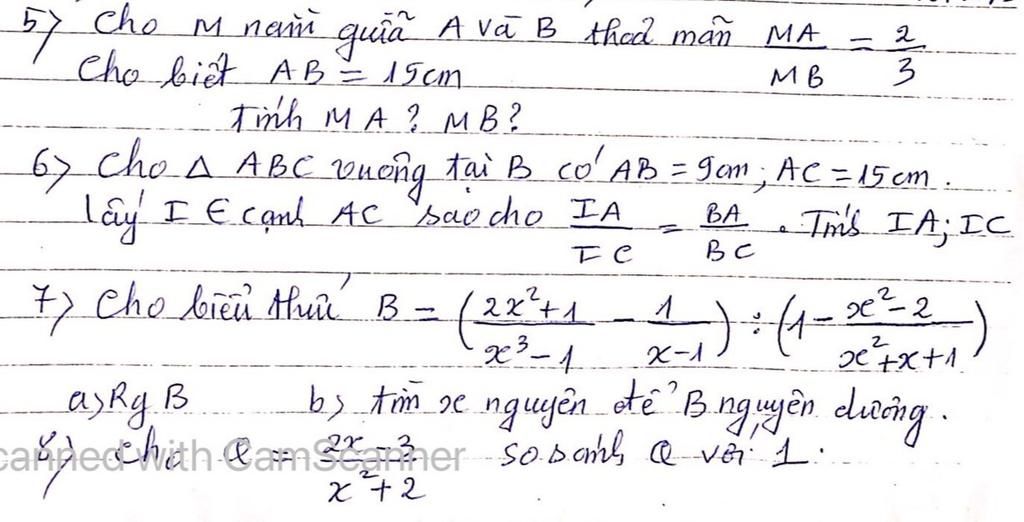 5) Cho M nằm giữa A và B thoả mãn MA/MB = 2/3
Cho biết AB = 15cm
Tính MA? MB?
6) Cho Δ ABC vuông tại B có AB = 9cm; AC = 15cm.
lấy I ∈ cạnh AC sao cho IA/IC = BA/BC. Tính IA; IC
7) Cho biểu thức B = ((2x²+1)/(x³-1) - 1/(x-1)) : (1 - (x²-2)/(x²+x+1))
a) Rg B b) tìm x nguyên để B nguyên dương.
8) cho Q = (2x-3)/(x²+2) so sánh Q với 1.
canned with CamScanner